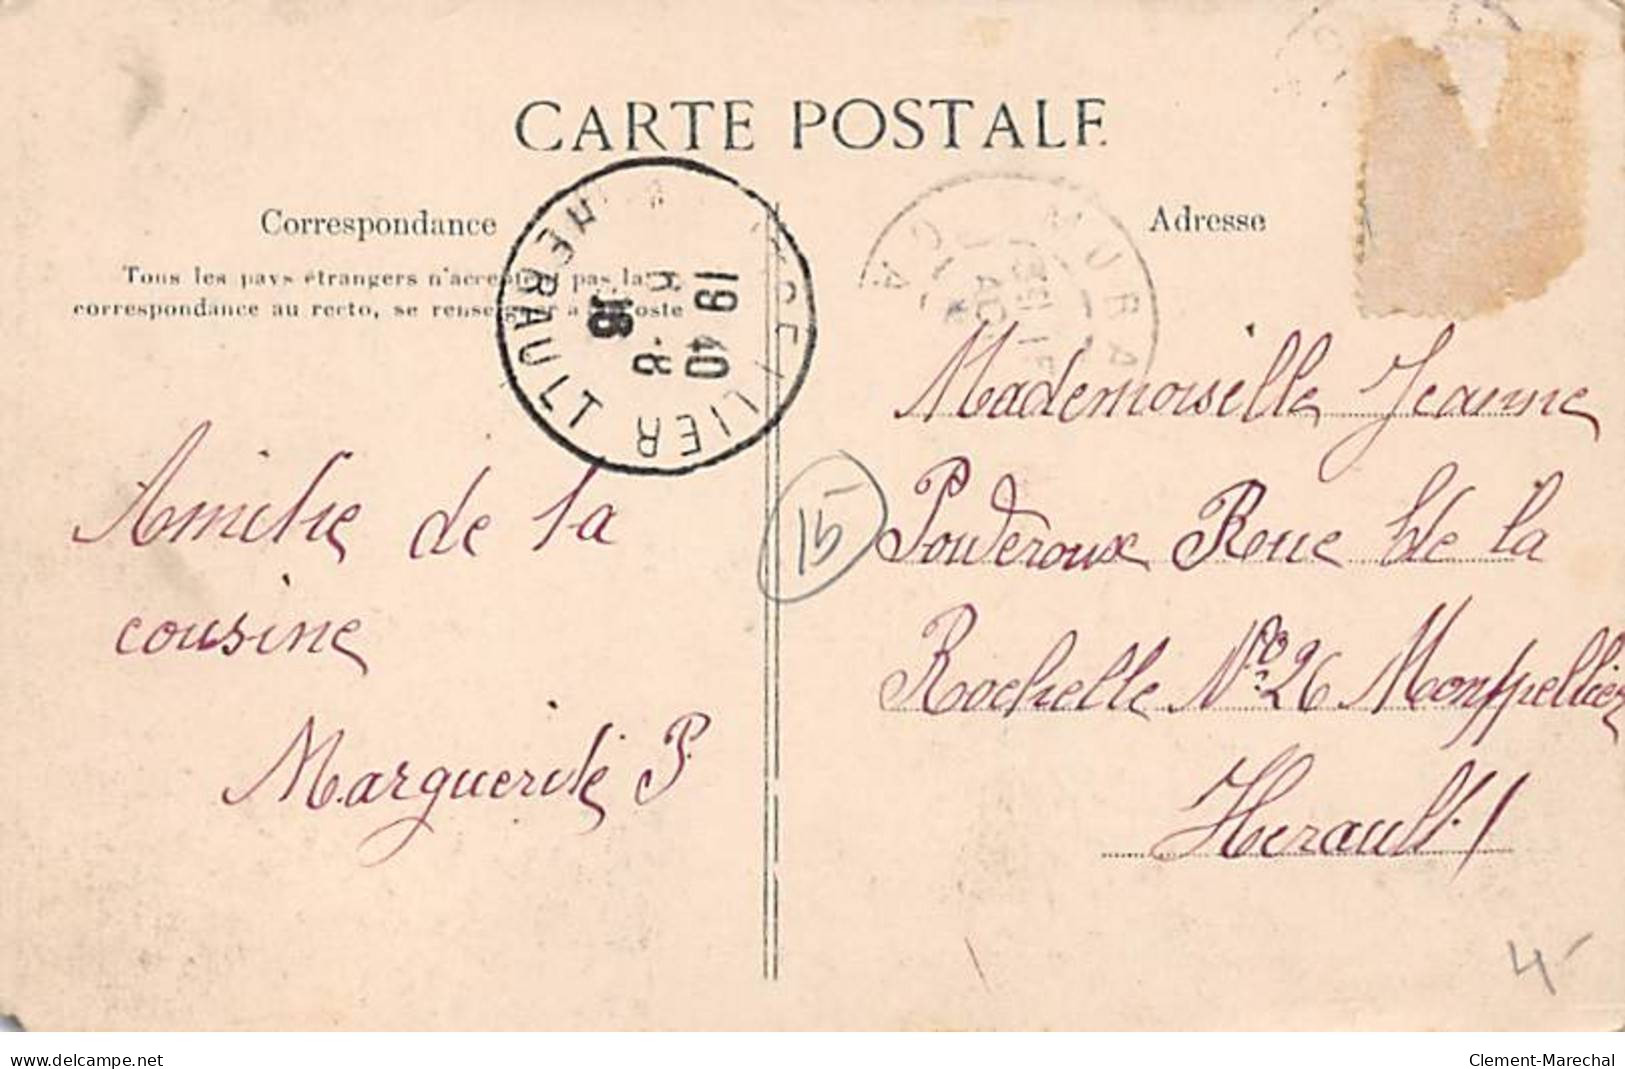 CARTE POSTALE
Correspondance
Tous les pays étrangers n'acceptent pas la
correspondance au recto, se renseigner à la Poste
HERAULT
19 40
8 - 8
16
Adresse
MURA
CA
Amitié de la
cousine
Marguerite P.
15
Mademoiselle Jeanne
Pouderoux Rue de la
Rochelle No 26 Montpellier
Herault
4
www.delcampe.net
Clement-Marechal